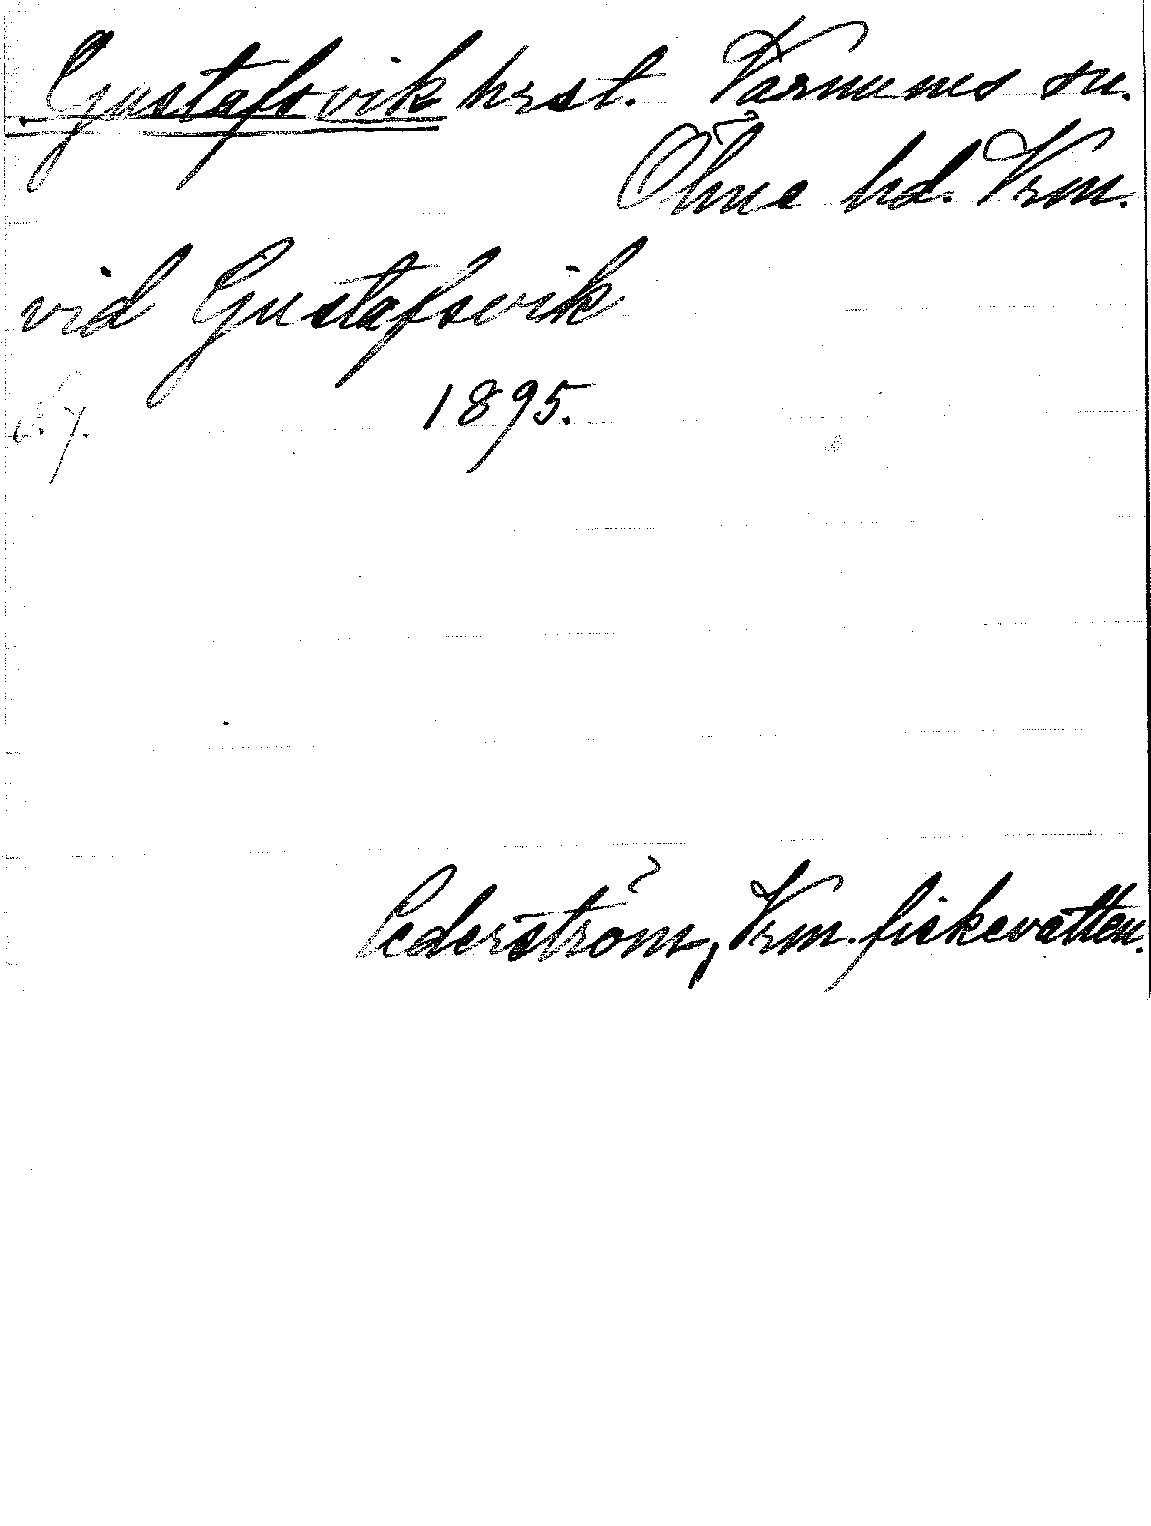 Gustafsvik hrst. Varnums sn.
Ölme hd. Vrm.
vid Gustafsvik
s. 7. 1895.
Cederström, Vrm. fiskevatten.